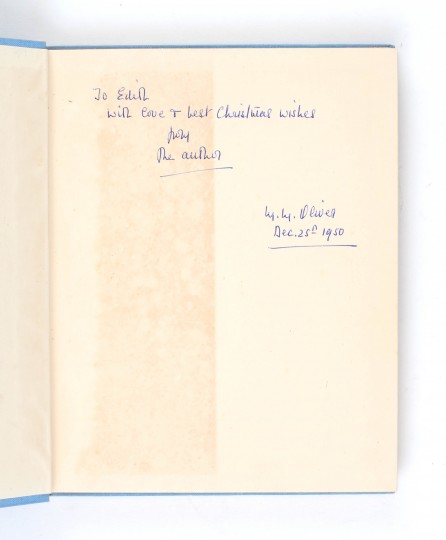 To Edith
with love & best Christmas wishes
from
the author
M. M. Oliver
Dec. 25th 1950